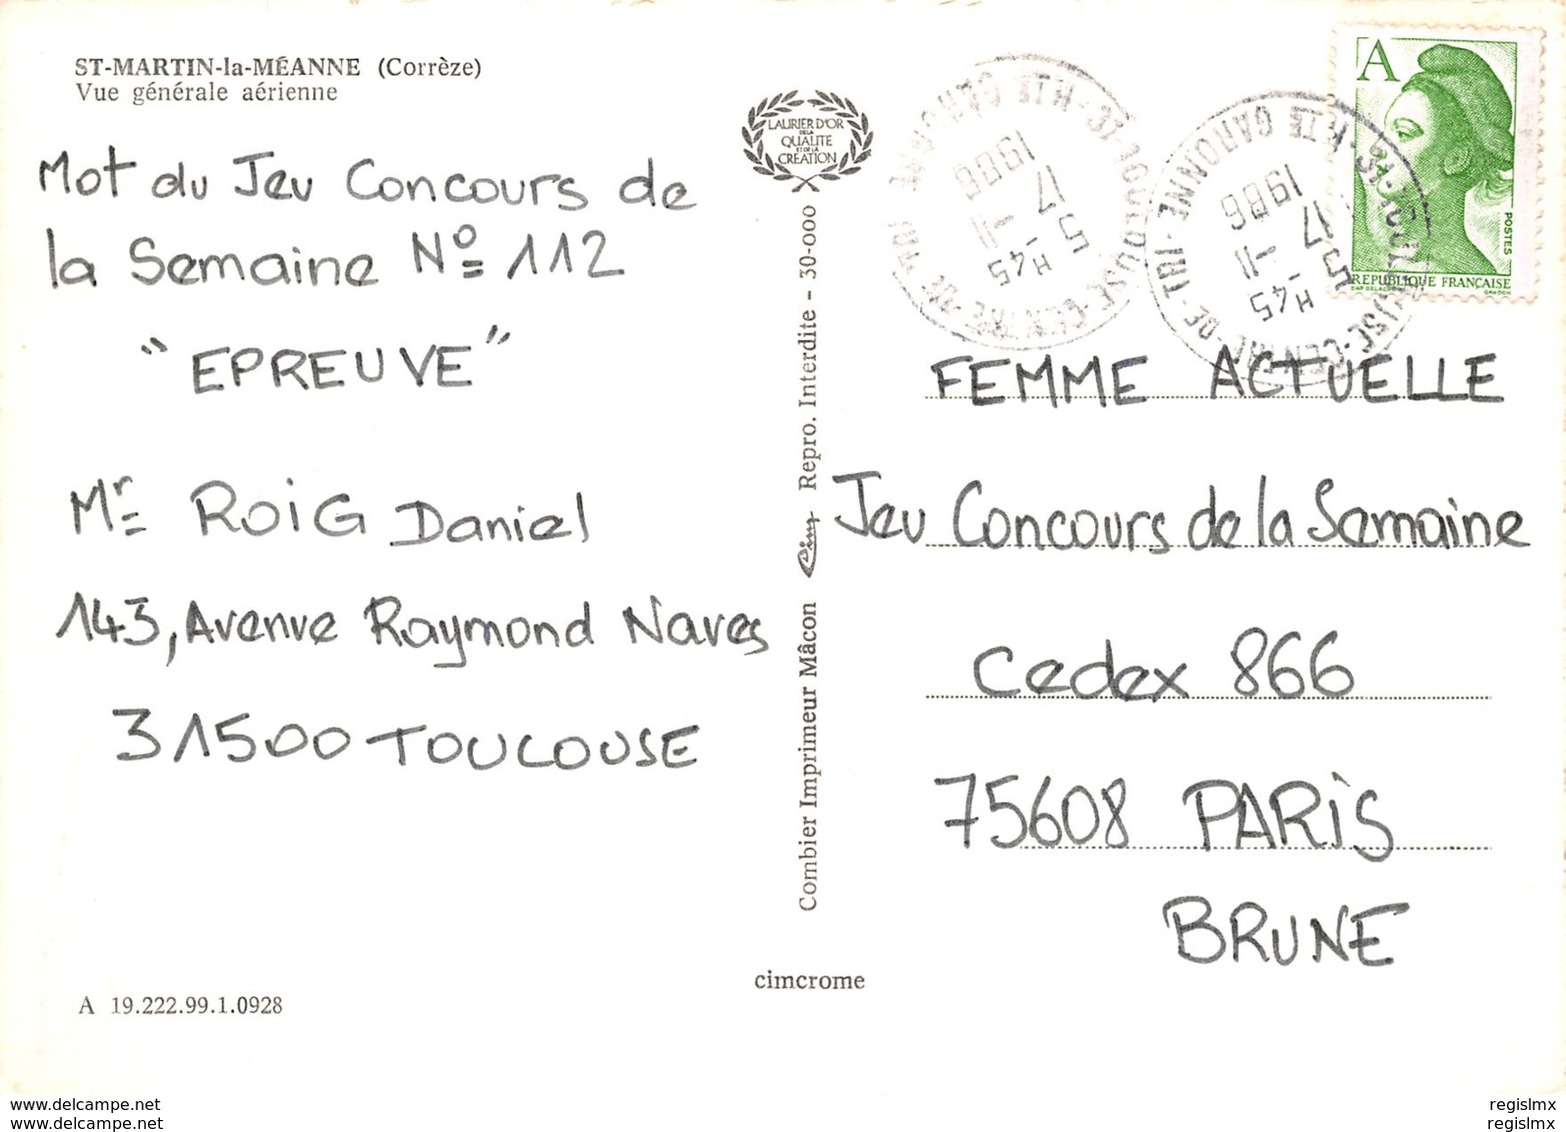 ST-MARTIN-la-MÉANNE (Corrèze)
Vue générale aérienne
Mot du Jeu Concours de
la Semaine Nº 112
"EPREUVE"
Mr ROIG Daniel
143, Avenue Raymond Naves
31500 TOULOUSE
A 19.222.99.1.0928
LAURIER D'OR
DE LA
QUALITE
ET DE LA
CREATION
Combier Imprimeur Mâcon Cim Repro. Interdite - 30-000
cimcrome
31-TOULOUSE-CENTRE-DE-TRI HTE GARONNE
5 H45
17 -11
1986
31-TOULOUSE-CENTRE-DE-TRI HTE GARONNE
5 H45
17 -11
1986
A
POSTES
REPUBLIQUE FRANÇAISE
D'AP DELACROIX GANDON
FEMME ACTUELLE
Jeu Concours de la Semaine
Cedex 866
75608 PARIS
BRUNE
www.delcampe.net
TOUCOULEURS
regislmx
regislmx